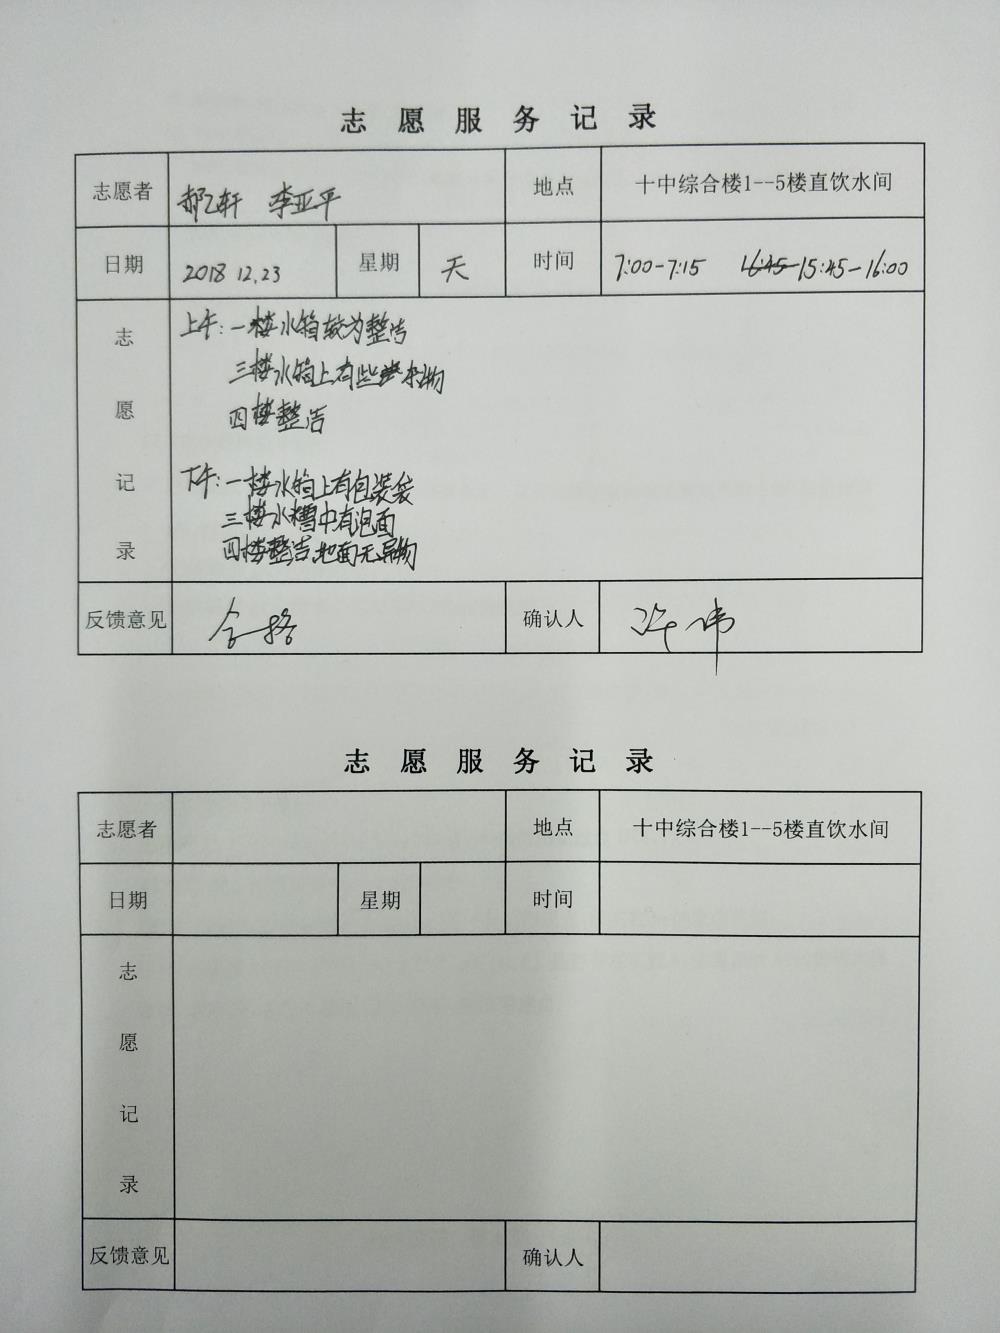 志愿服务记录
志愿者 郝乙轩 李亚平 地点 十中综合楼1--5楼直饮水间
日期 2018 12.23 星期 天 时间 7:00-7:15 16:45-15:45-16:00
志愿记录
上午:一楼水箱较为整洁
三楼水箱上有些杂物
四楼整洁
下午:一楼水箱上有包装袋
三楼水槽中有泡面
四楼整洁,地面无异物
反馈意见 合格 确认人 许伟
志愿服务记录
志愿者 地点 十中综合楼1--5楼直饮水间
日期 星期 时间
志愿记录
反馈意见 确认人